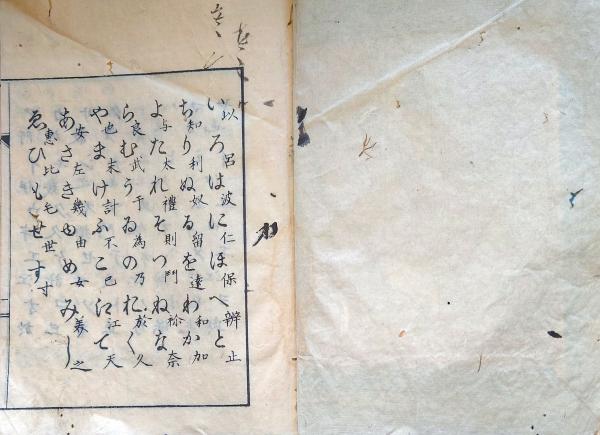 いろはにほへと
以呂波仁保辨止
ちりぬるをわか
知利奴留遠和加
よたれそつねな
与太禮則門祢奈
らむうゐのおく
良武于為乃於久
やまけふこえて
也末計不己江天
あさきゆめみし
安左幾由女美之
ゑひもせす
惠比毛世寸